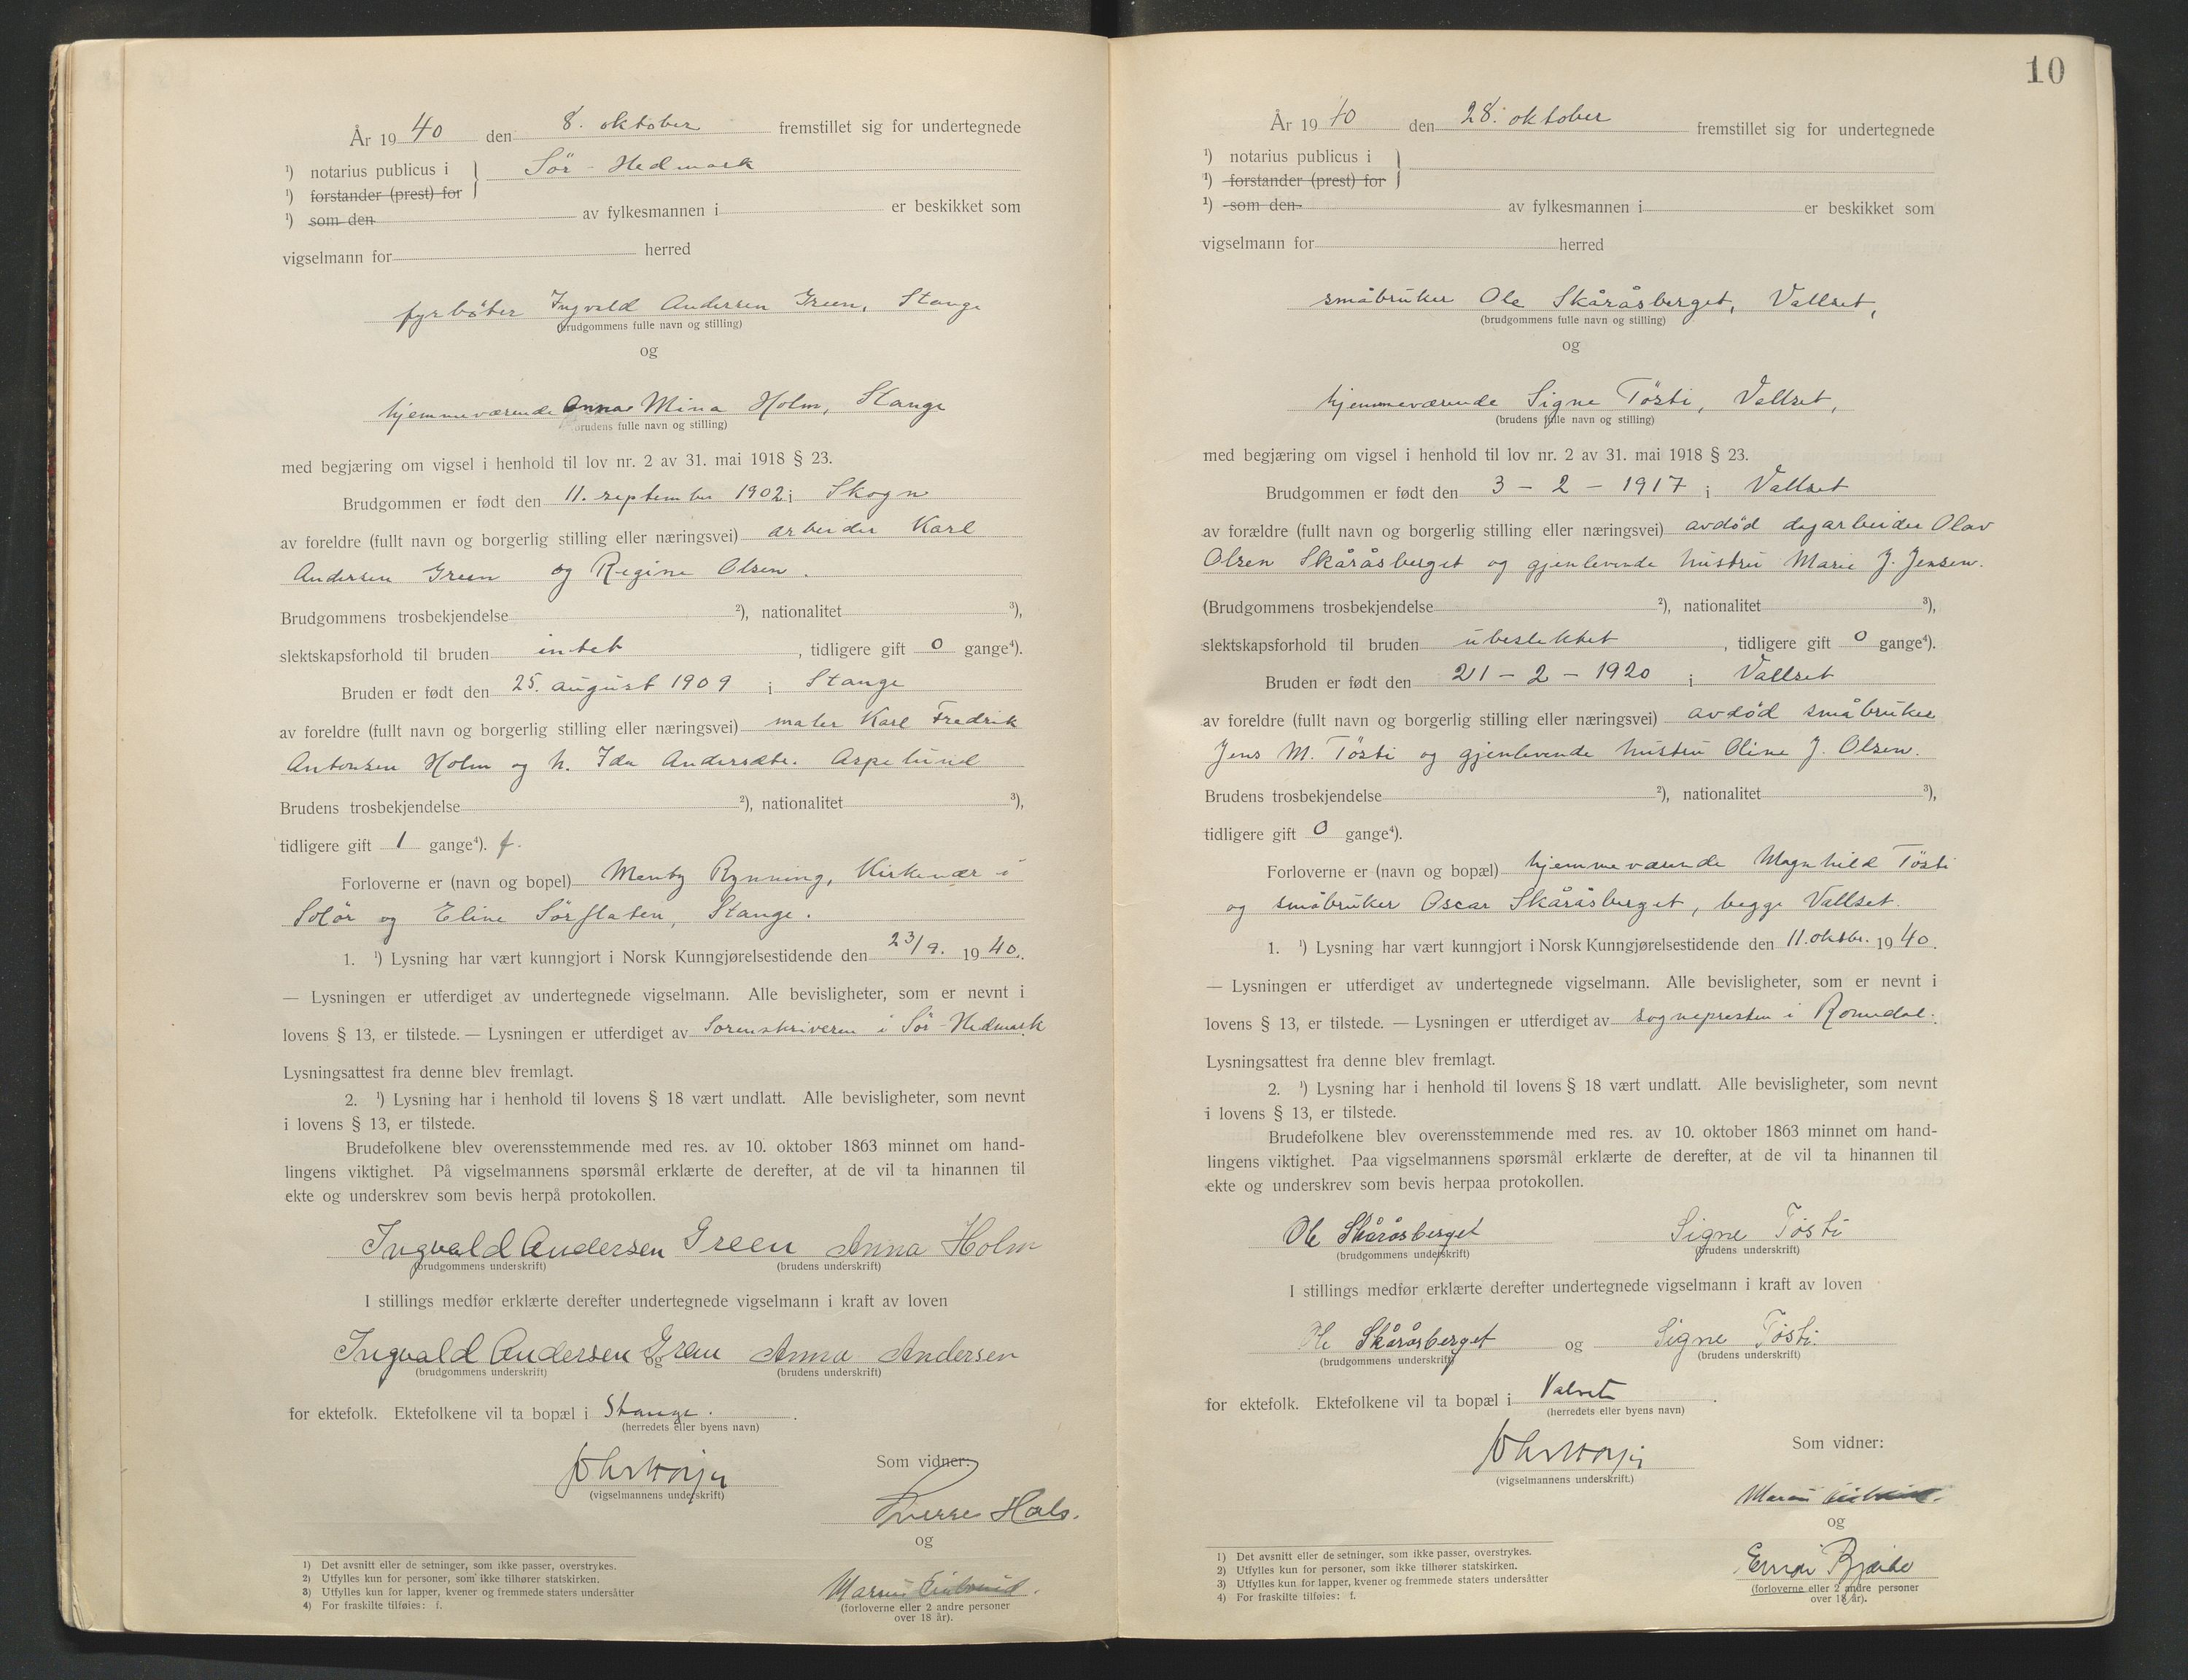 År 19 40 den 8. oktober fremstillet sig for undertegnede
¹) notarius publicus i } Sör-Hedmark
¹) forstander (prest) for
¹) som den av fylkesmannen i er beskikket som
vigselmann for herred
fyrböter Ingvald Andersen Green, Stange
(brudgommens fulle navn og stilling)
og
hjemmeværende Anna Mina Holm, Stange
(brudens fulle navn og stilling)
med begjæring om vigsel i henhold til lov nr. 2 av 31. mai 1918 § 23.
Brudgommen er født den 11. september 1902 i Skogn
av foreldre (fullt navn og borgerlig stilling eller næringsvei) arbeider Karl
Andersen Green og Regine Olsen.
Brudgommens trosbekjendelse ²), nationalitet ³),
slektskapsforhold til bruden intet, tidligere gift 0 gange⁴).
Bruden er født den 25. august 1909 i Stange
av foreldre (fullt navn og borgerlig stilling eller næringsvei) maler Karl Fredrik
Antonsen Holm og h. Ida Andersdtr. Aspelund
Brudens trosbekjendelse ²), nationalitet ³),
tidligere gift 1 gange⁴). f.
Forloverne er (navn og bopel) Menby Rynning, Kirkenær i
Solör og Eline Sörflaten, Stange.
1. ¹) Lysning har vært kunngjort i Norsk Kunngjørelsestidende den 23/9. 19 40.
— Lysningen er utferdiget av undertegnede vigselmann. Alle bevisligheter, som er nevnt i
lovens § 13, er tilstede. — Lysningen er utferdiget av Sorenskriveren i Sör-Hedmark.
Lysningsattest fra denne blev fremlagt.
2. ¹) Lysning har i henhold til lovens § 18 vært undlatt. Alle bevisligheter, som nevnt
i lovens § 13, er tilstede.
Brudefolkene blev overensstemmende med res. av 10. oktober 1863 minnet om hand-
lingens viktighet. På vigselmannens spørsmål erklærte de derefter, at de vil ta hinannen til
ekte og underskrev som bevis herpå protokollen.
Ingvald Andersen Green Anna Holm
(brudgommens underskrift) (brudens underskrift)
I stillings medfør erklærte derefter undertegnede vigselmann i kraft av loven
Ingvald Andersen Green og Anna Andersen
(brudgommens underskrift) (brudens underskrift)
for ektefolk. Ektefolkene vil ta bopæl i Stange.
(herredets eller byens navn)
(vigselmannens underskrift)
Som vidner:
Sverre Hals.
og
(forloverne eller 2 andre personer
over 18 år).
1) Det avsnitt eller de setninger, som ikke passer, overstrykes.
2) Utfylles kun for personer, som ikke tilhører statskirken.
3) Utfylles kun for lapper, kvener og fremmede staters undersåtter
4) For fraskilte tilføies: f.
10
År 19 40 den 28. oktober fremstillet sig for undertegnede
¹) notarius publicus i }
¹) forstander (prest) for
¹) som den av fylkesmannen i er beskikket som
vigselmann for herred
småbruker Ole Skåråsberget, Vallset,
(brudgommens fulle navn og stilling)
og
hjemmeværende Signe Tösti, Vallset,
(brudens fulle navn og stilling)
med begjæring om vigsel i henhold til lov nr. 2 av 31. mai 1918 § 23.
Brudgommen er født den 3 - 2 - 1917 i Vallset
av forældre (fullt navn og borgerlig stilling eller næringsvei) avdöd dagarbeider Olav
Olsen Skåråsberget og gjenlevende hustru Marie J. Jensen.
(Brudgommens trosbekjendelse ²), nationalitet ³),
slektskapsforhold til bruden ubeslektet, tidligere gift 0 gange⁴).
Bruden er født den 21 - 2 - 1920 i Vallset
av foreldre (fullt navn og borgerlig stilling eller næringsvei) avdöd småbruker
Jens M. Tösti og gjenlevende hustru Oline J. Olsen.
Brudens trosbekjendelse ²), nationalitet ³),
tidligere gift 0 gange⁴).
Forloverne er (navn og bopæl) hjemmeværende Magnhild Tösti
og småbruker Oscar Skåråsberget, begge Vallset.
1. ¹) Lysning har vært kunngjort i Norsk Kunngjørelsestidende den 11. oktbr. 19 40.
— Lysningen er utferdiget av undertegnede vigselmann. Alle bevisligheter, som er nevnt i
lovens § 13, er tilstede. — Lysningen er utferdiget av sognepresten i Romedal.
Lysningsattest fra denne blev fremlagt.
2. ¹) Lysning har i henhold til lovens § 18 vært undlatt. Alle bevisligheter, som nevnt
i lovens § 13, er tilstede.
Brudefolkene blev overensstemmende med res. av 10. oktober 1863 minnet om hand-
lingens viktighet. Paa vigselmannens spørsmål erklærte de derefter, at de vil ta hinannen til
ekte og underskrev som bevis herpaa protokollen.
Ole Skåråsberget Signe Tøsti
(brudgommens underskrift) (brudens underskrift)
I stillings medfør erklærte derefter undertegnede vigselmann i kraft av loven
Ole Skåråsberget og Signe Tøsti.
(brudgommens underskrift) (brudens underskrift)
for ektefolk. Ektefolkene vil ta bopæl i Valset.
(herredets eller byens navn)
(vigselmannens underskrift.)
Som vidner:
og
(forloverne eller 2 andre personer
over 18 år).
1) Det avsnitt eller de setninger, som ikke passer, overstrykes.
2) Utfylles kun for personer, som ikke tilhører statskirken.
3) Utfylles kun for lapper, kvener og fremmede staters undersåtter
4) For fraskilte tilføies: f.